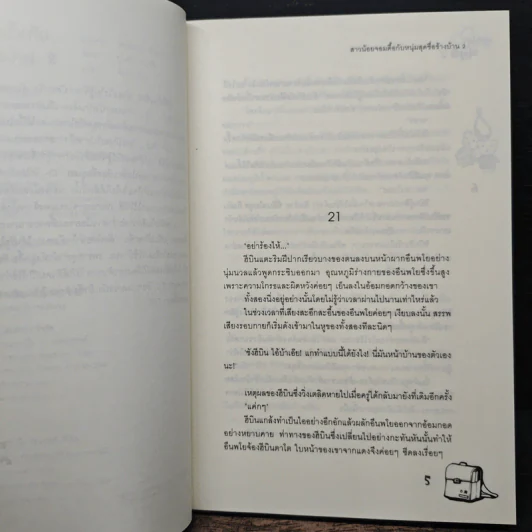 สาวน้อยจอมดื้อกับหนุ่มสุดซื่อข้างบ้าน 2
21
'อย่าร้องไห้...'
ฮีบินแตะริมฝีปากเรียวบางของตนลงบนหน้าผากอึนพโยอย่าง
นุ่มนวลแล้วพูดกระซิบออกมา อุณหภูมิร่างกายของอึนพโยซึ่งขึ้นสูง
เพราะความโกรธและผิดหวังค่อยๆ เย็นลงในอ้อมกอดกว้างของเขา
ทั้งสองนิ่งอยู่อย่างนั้นโดยไม่รู้ว่าเวลาผ่านไปนานเท่าไหร่แล้ว
ในช่วงเวลาที่เสียงสะอึกสะอื้นของอึนพโยค่อยๆ เงียบลงนั้น สรรพ
เสียงรอบกายก็เริ่มดังเข้ามาในหูของทั้งสองทีละนิดๆ
'ชังฮีบิน ไอ้บ้าเอ๊ย! แกทำแบบนี้ได้ยังไง! นี่มันหน้าบ้านของตัวเอง
นะ!'
เหตุผลของฮีบินซึ่งวิ่งเตลิดหายไปเมื่อครู่ได้กลับมายังที่เดิมอีกครั้ง
'แค่กๆ'
ฮีบินแกล้งทำเป็นไออย่างอึกอักแล้วผลักอึนพโยออกจากอ้อมกอด
อย่างหยาบคาย ท่าทางของฮีบินซึ่งเปลี่ยนไปอย่างกะทันหันนั้นทำให้
อึนพโยจ้องฮีบินตาโต ใบหน้าของเขาจากแดงจึงค่อยๆ ซีดลงเรื่อยๆ
5